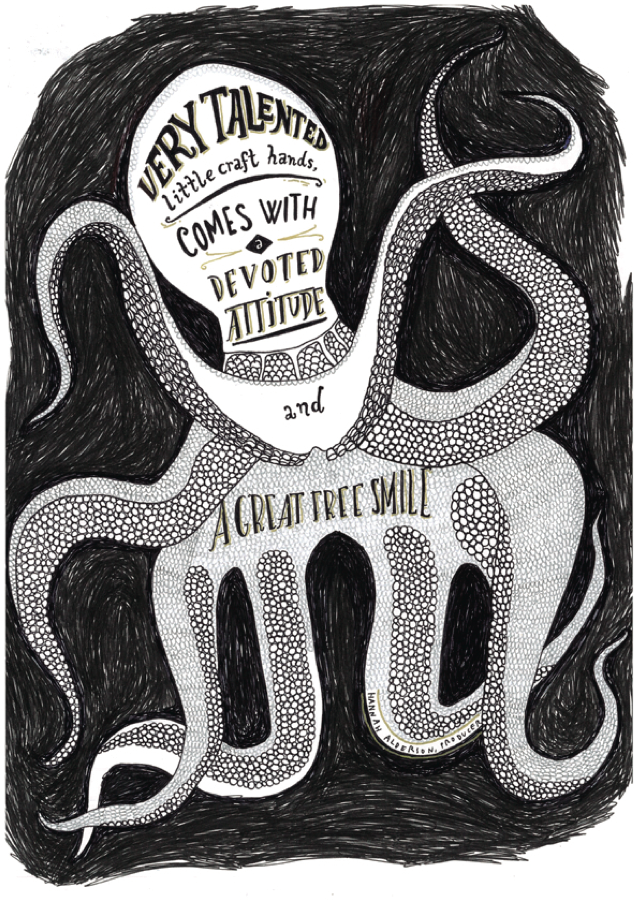 VERY TALENTED
little craft hands,
COMES WITH
a
DEVOTED
ATTiTUDE
and
A GREAT FREE SMILE
HANNAH ALDERSON, PRODUCER